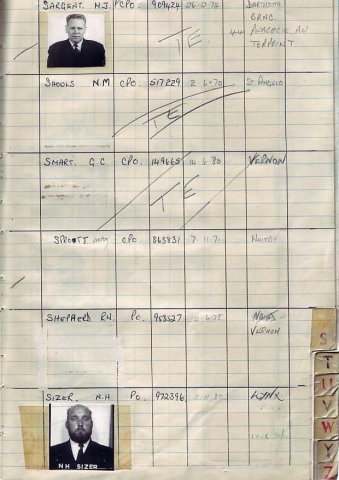 SARGENT. M.J. CPO. 909424 26-2-74 DARTMOUTH
BRNC
44 PEACOCK AV
TORPOINT
TE
SHOULS N.M CPO. 517229 2-6-70 ST. ANGELO
TE
SMART. G.C. CPO. 149665 14-6-80 VERNON
TE
SPROTT. ANDY CPO. 863831 7-11-71 WHITBY
SHEPHERD. R.H. PO. 953527
VERNON
SIZER. N.H PO. 972396 11-11-80 LYNX
NH SIZER
S
T
U
V
W
Y
Z